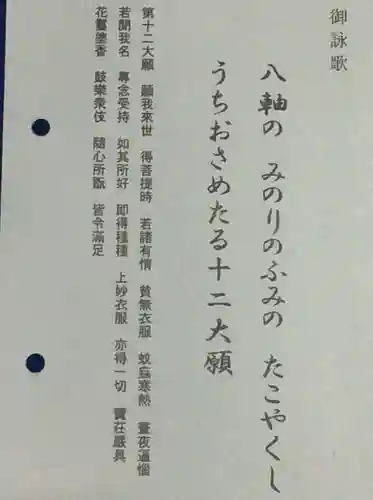 御詠歌
八軸の みのりのふみの たこやくし
うちおさめたる十二大願
第十二大願 願我來世 得菩提時 若諸有情 貧無衣服 蚊虻寒熱 晝夜逼惱
若聞我名 專念受持 如其所好 即得種種 上妙衣服 亦得一切 寶莊嚴具
花鬘塗香 鼓樂衆伎 隨心所翫 皆令滿足